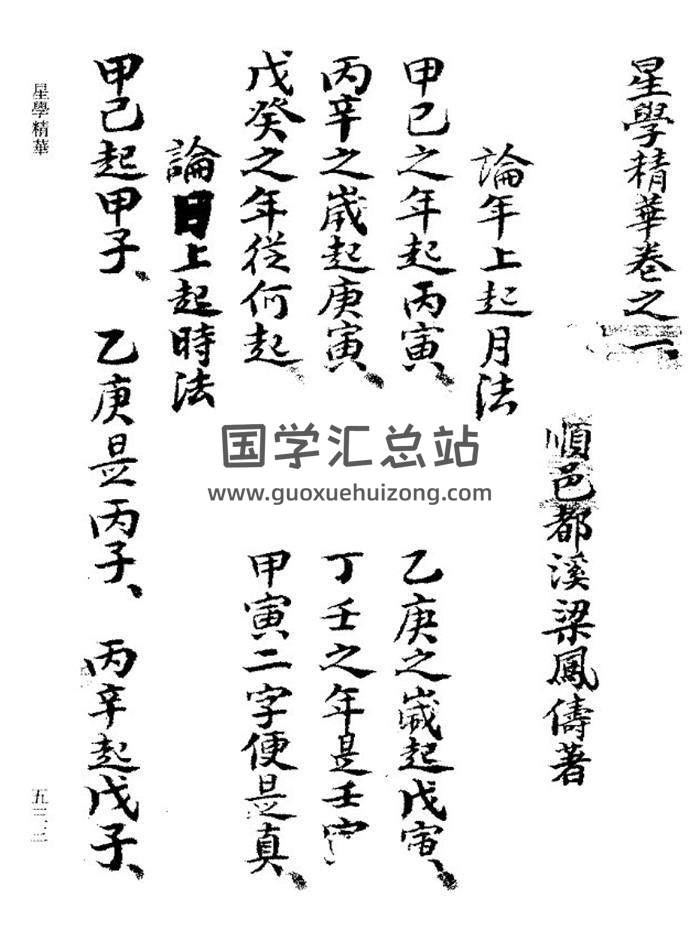 星學精華卷之一
順邑都溪梁鳳儔著
論年上起月法
甲己之年起丙寅、 乙庚之歲起戊寅、
丙辛之歲起庚寅、 丁壬之年是壬
戊癸之年從何起、 甲寅二字便是真、
論日上起時法
甲己起甲子、 乙庚是丙子、 丙辛起戊子、
星學精華
国学汇总站
www.guoxuehuizong.com